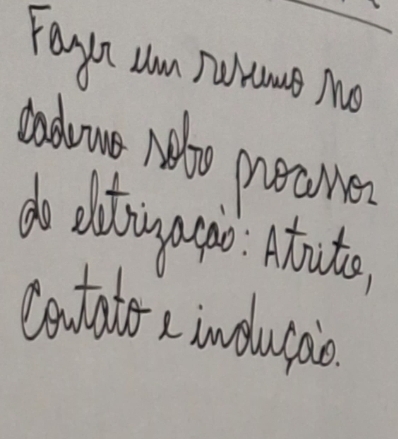 Fazer um resumo no
caderno sobre processos
de eletrização: Atrito,
Contato e indução.